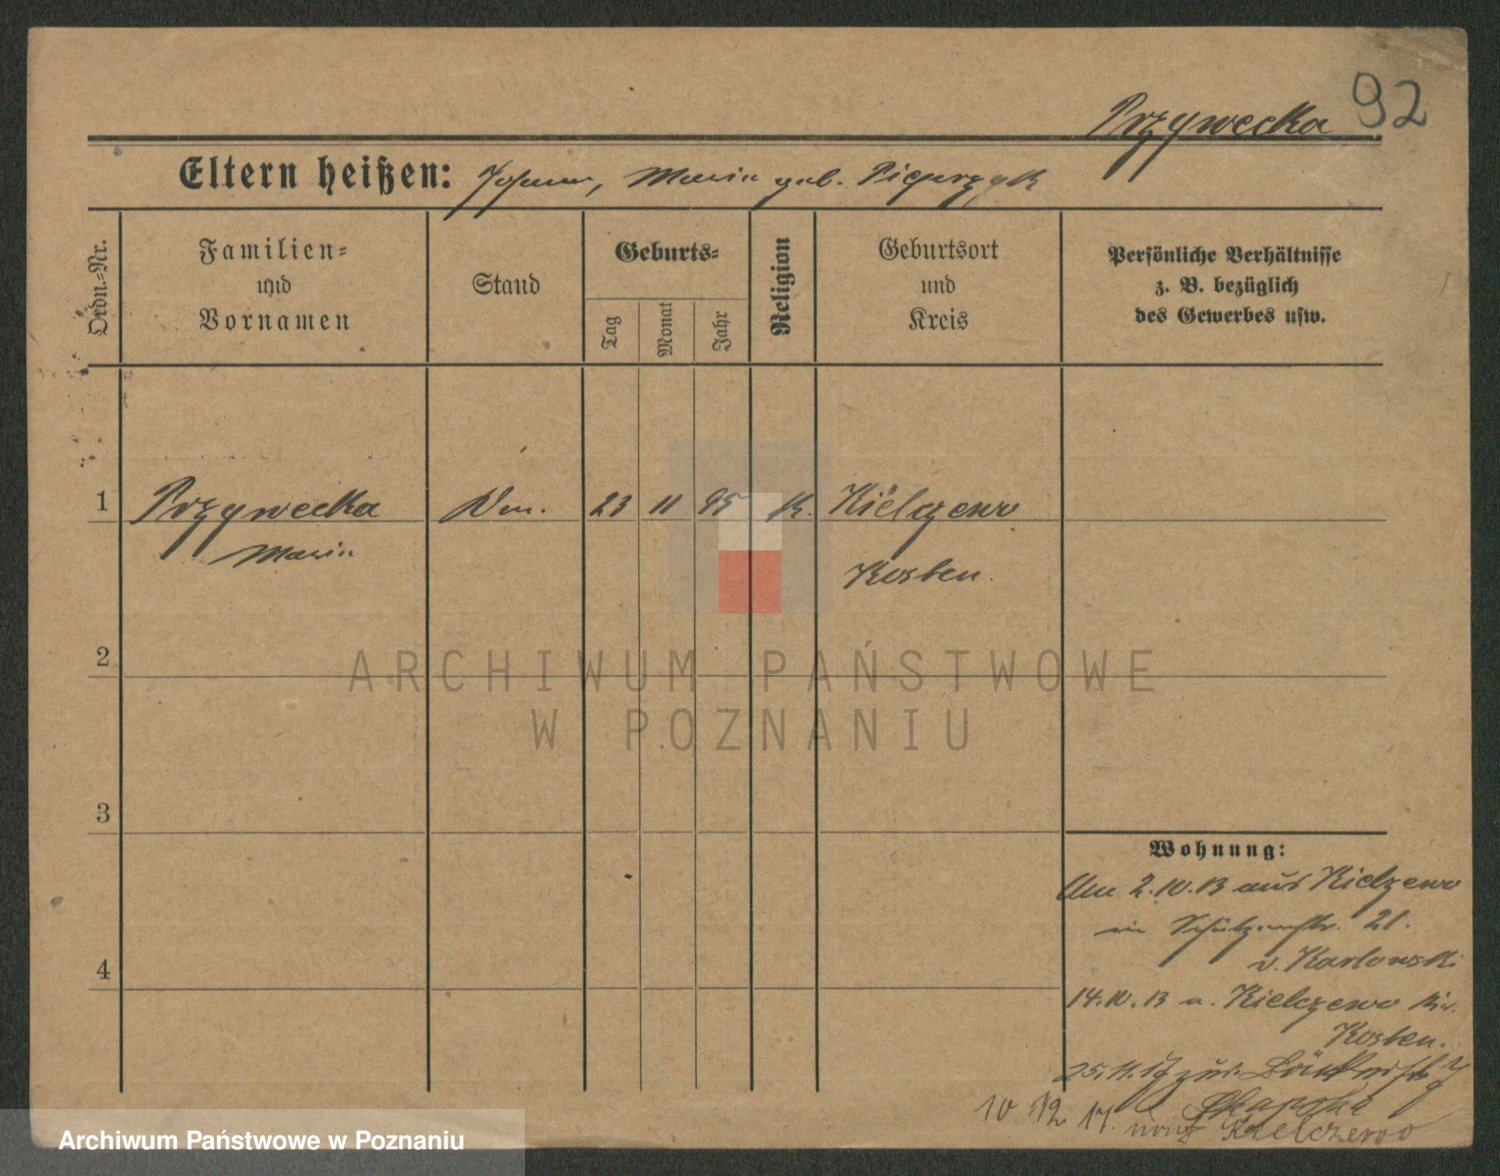 92
Przywecka
Eltern heißen: Johann, Maria geb. Pieprzyk
Ordn.-Nr.
Familien-
und
Vornamen
Stand
Geburts-
Tag
Monat
Jahr
Religion
Geburtsort
und
Kreis
Persönliche Verhältnisse
z. B. bezüglich
des Gewerbes usw.
1 Przywecka 23 11 95 K. Kielczewo
Maria Kosten.
2
ARCHIWUM PAŃSTWOWE
W POZNANIU
3
Wohnung:
2.10.13 aus Kielczewo
in Schützenstr. 21.
v. Karlowski
4
14.10.13 n. Kielczewo Kr.
Kosten.
25.11.17 zur.
10.12.17. nach Kielczewo
Archiwum Państwowe w Poznaniu